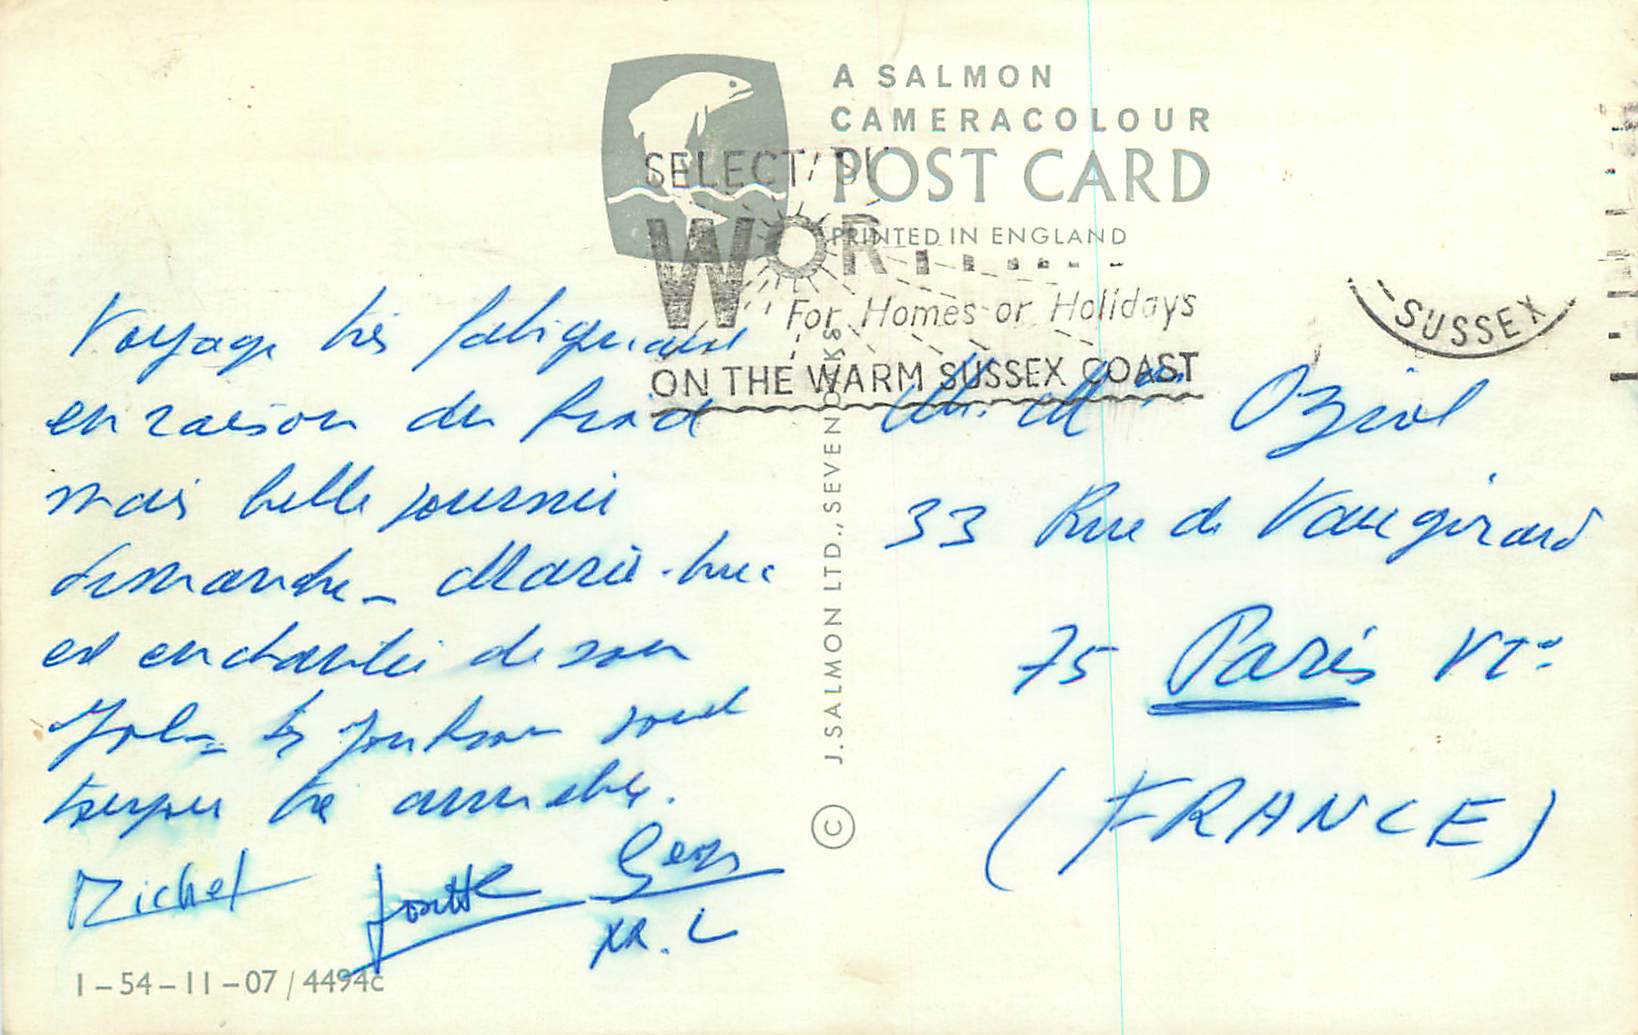 A SALMON
CAMERACOLOUR
POST CARD
PRINTED IN ENGLAND
SELECT
WOR
For Homes or Holidays
ON THE WARM SUSSEX COAST
SUSSEX
Voyage très fatiguant
en raison du froid
mais belle journée
dimanche - Marie-Luce
est enchantée de son
les sont
toujours très
Michel Josette Geo
M. L
M. Mme Oziol
33 Rue de Vaugirard
75 Paris VIe
(FRANCE)
J. SALMON LTD., SEVENOAKS ©
1-54-11-07/4494c